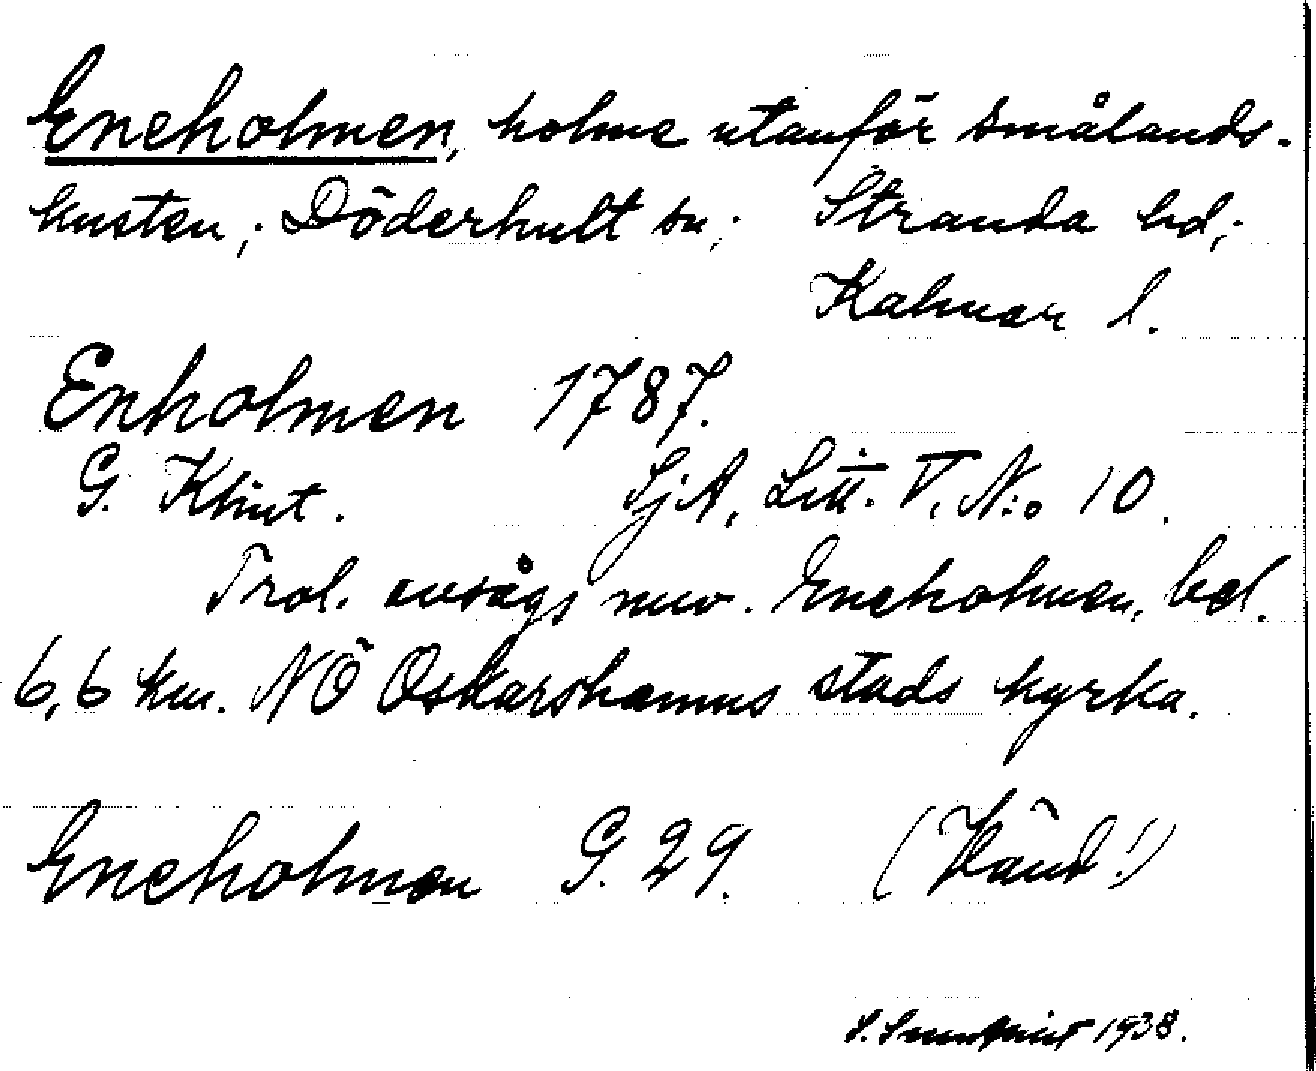 Eneholmen, holme utanför smålands-
kusten; Döderhult sn; Stranda hd;
Kalmar l.
Enholmen 1787.
G. Klint. SjA, Litt. V, N:o 10.
Trol. avsågs nuv. Eneholmen, bel.
6,6 km. NÖ Oskarshamns stads kyrka.
Eneholmen G. 29. (Vänd!)
S. 1938.